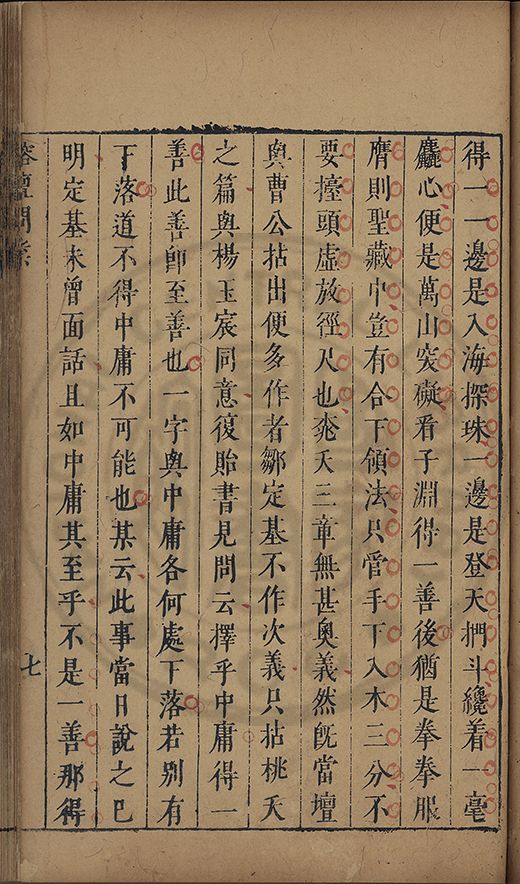 得一一邊是入海探珠一邊是登天捫斗纔着一毫
麤心便是萬山突礙看子淵得一善後猶是拳拳服
膺則聖藏中豈有合下領法只管手下入木三分不
要擡頭虛放徑尺也桃夭三章無甚奧義然旣當壇
與曹公拈出便多作者鄒定基不作次義只拈桃夭
之篇與楊玉宸同意復貽書見問云擇乎中庸得一
善此善卽至善也一字與中庸各何處下落若別有
下落道不得中庸不可能也某云此事當日說之已
明定基未曾面話且如中庸其至乎不是一善那得
榕壇問業
七